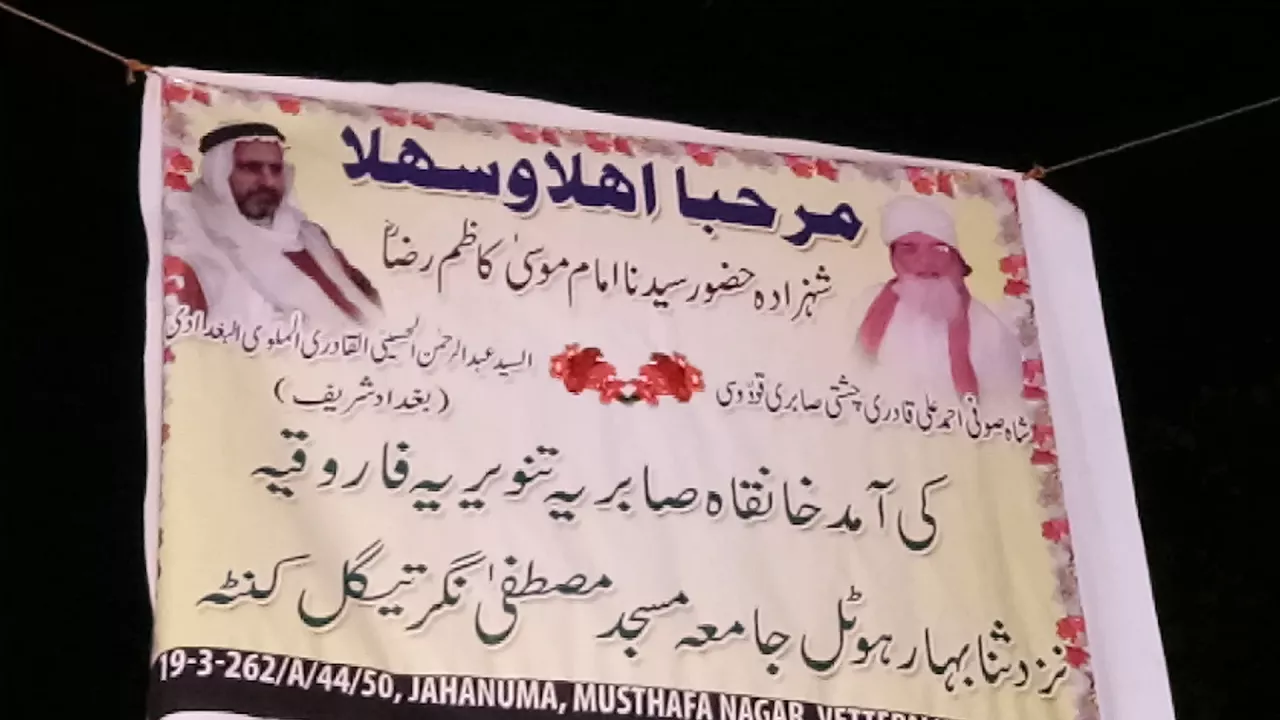 مرحبا اھلا وسھلا
شہزادہ حضور سیدنا امام موسیٰ کاظم رضاؓ
شاہ صوفی احمد علی قادری چشتی صابری قدوسی
السید عبدالرحمٰن الحسینی القادری الملوی البغدادی
(بغداد شریف)
کی آمد خانقاہ صابریہ تنویریہ فاروقیہ
نزد ثنا بہار ہوٹل جامعہ مسجد مصطفیٰ نگر تیگل کنٹہ
19-3-262/A/44/50, JAHANUMA, MUSTHAFA NAGAR,